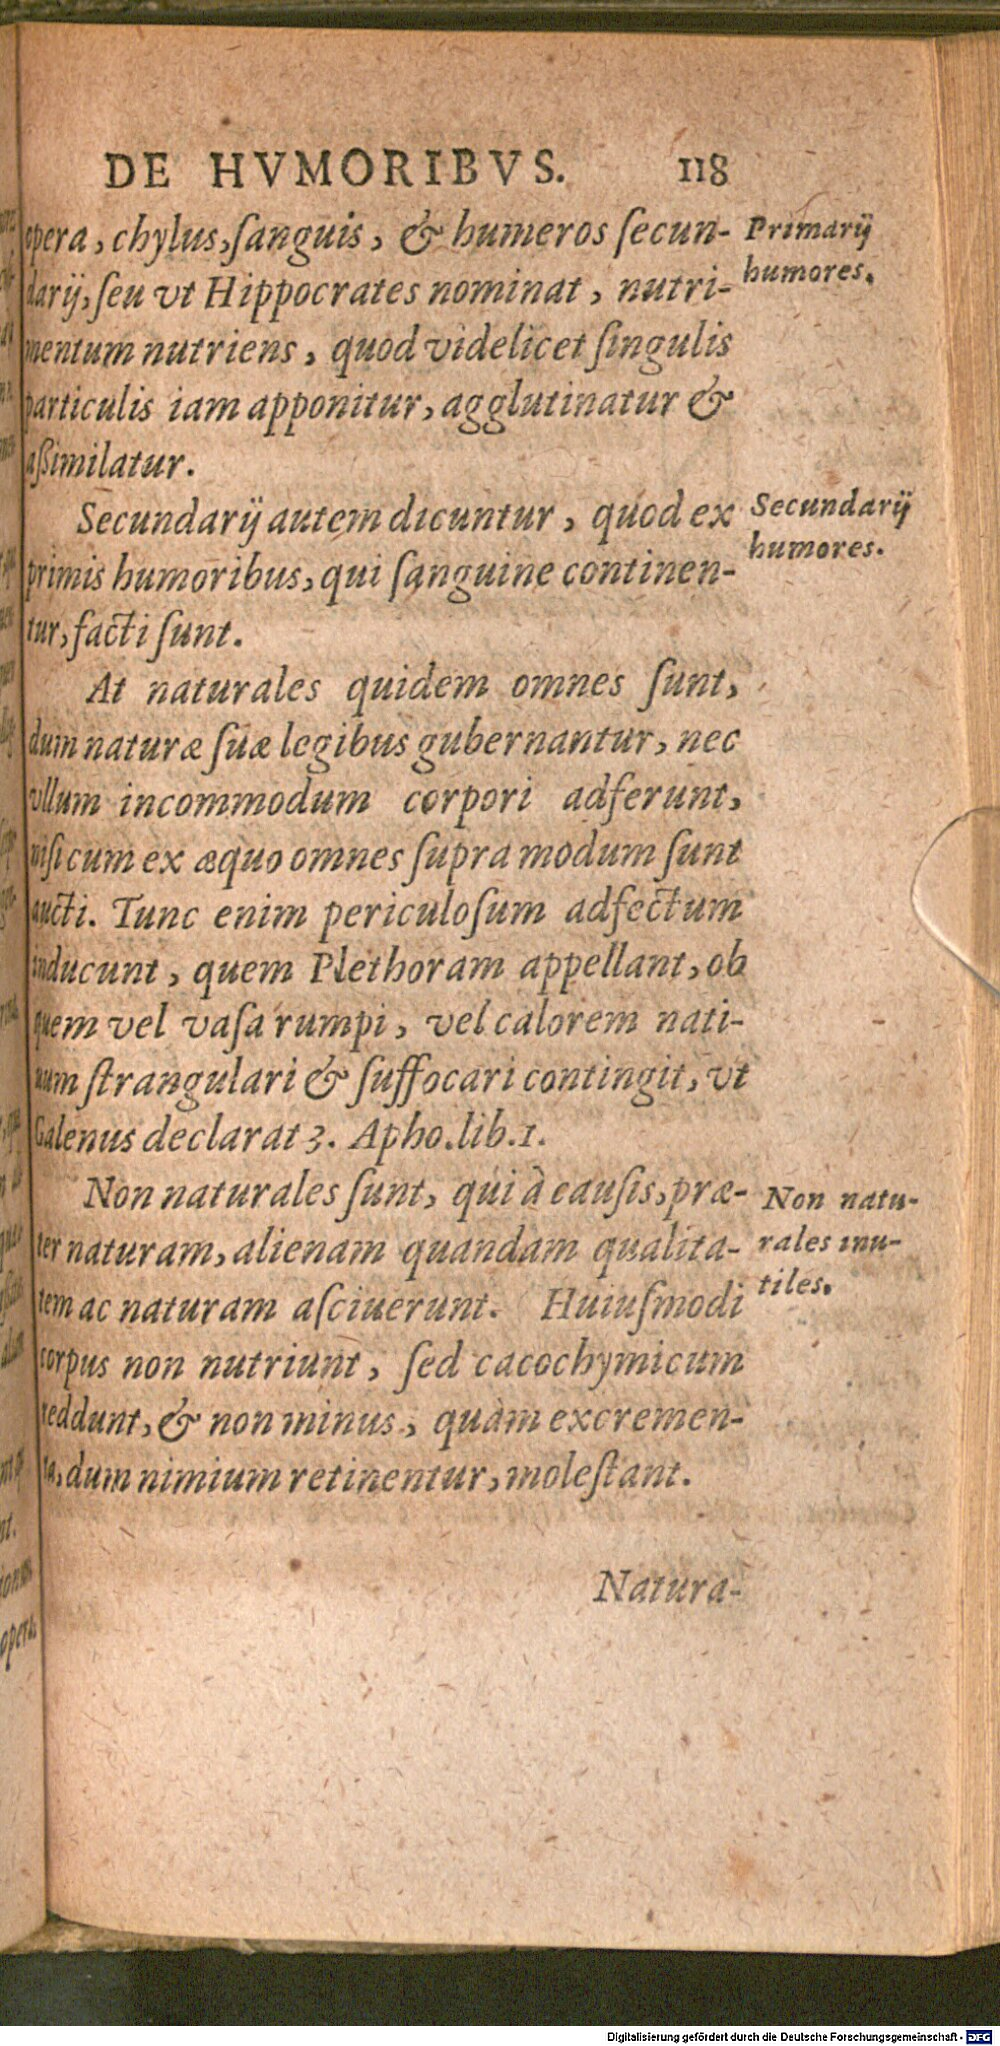 DE HVMORIBVS. 118
opera, chylus, ſanguis, & humeros ſecun-
darij, ſeu vt Hippocrates nominat, nutri-
mentum nutriens, quod videlicet ſingulis
particulis iam apponitur, agglutinatur &
aßimilatur.
Primarij
humores.
Secundarij autem dicuntur, quod ex
primis humoribus, qui ſanguine continen-
tur, facti ſunt.
Secundarij
humores.
At naturales quidem omnes ſunt,
dum naturæ ſuæ legibus gubernantur, nec
vllum incommodum corpori adferunt,
niſi cum ex æquo omnes ſupra modum ſunt
aucti. Tunc enim periculoſum adfectum
inducunt, quem Plethoram appellant, ob
quem vel vaſa rumpi, vel calorem nati-
uum ſtrangulari & ſuffocari contingit, vt
Galenus declarat 3. Apho. lib. 1.
Non naturales ſunt, qui à cauſis, præ-
ter naturam, alienam quandam qualita-
tem ac naturam aſciuerunt. Huiuſmodi
corpus non nutriunt, ſed cacochymicum
reddunt, & non minus, quàm excremen-
ta, dum nimium retinentur, moleſtant.
Non natu-
rales inu-
tiles.
Natura-
Digitalisierung gefördert durch die Deutsche Forschungsgemeinschaft - DFG